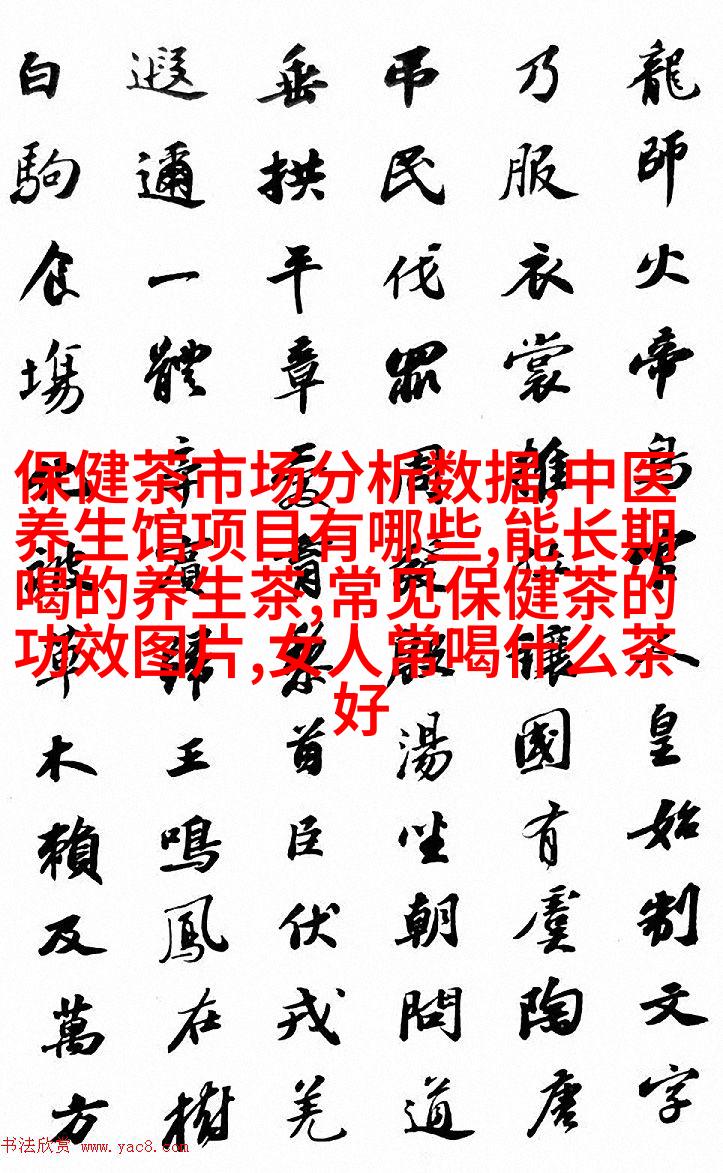 龍師火帝鳥官人皇始制文字
乃服衣裳推位讓國有虞陶唐
吊民伐罪周發殷湯坐朝問道
垂拱平章愛育黎首臣伏戎羌
遐邇一體率賓歸王鳴鳳在樹
白駒食場化被草木賴及萬方
保健茶市场分析数据,中医
养生馆项目有哪些,能长期
喝的养生茶,常见保健茶的
功效图片,女人常喝什么茶
好
书法欣赏 www.yac8.com